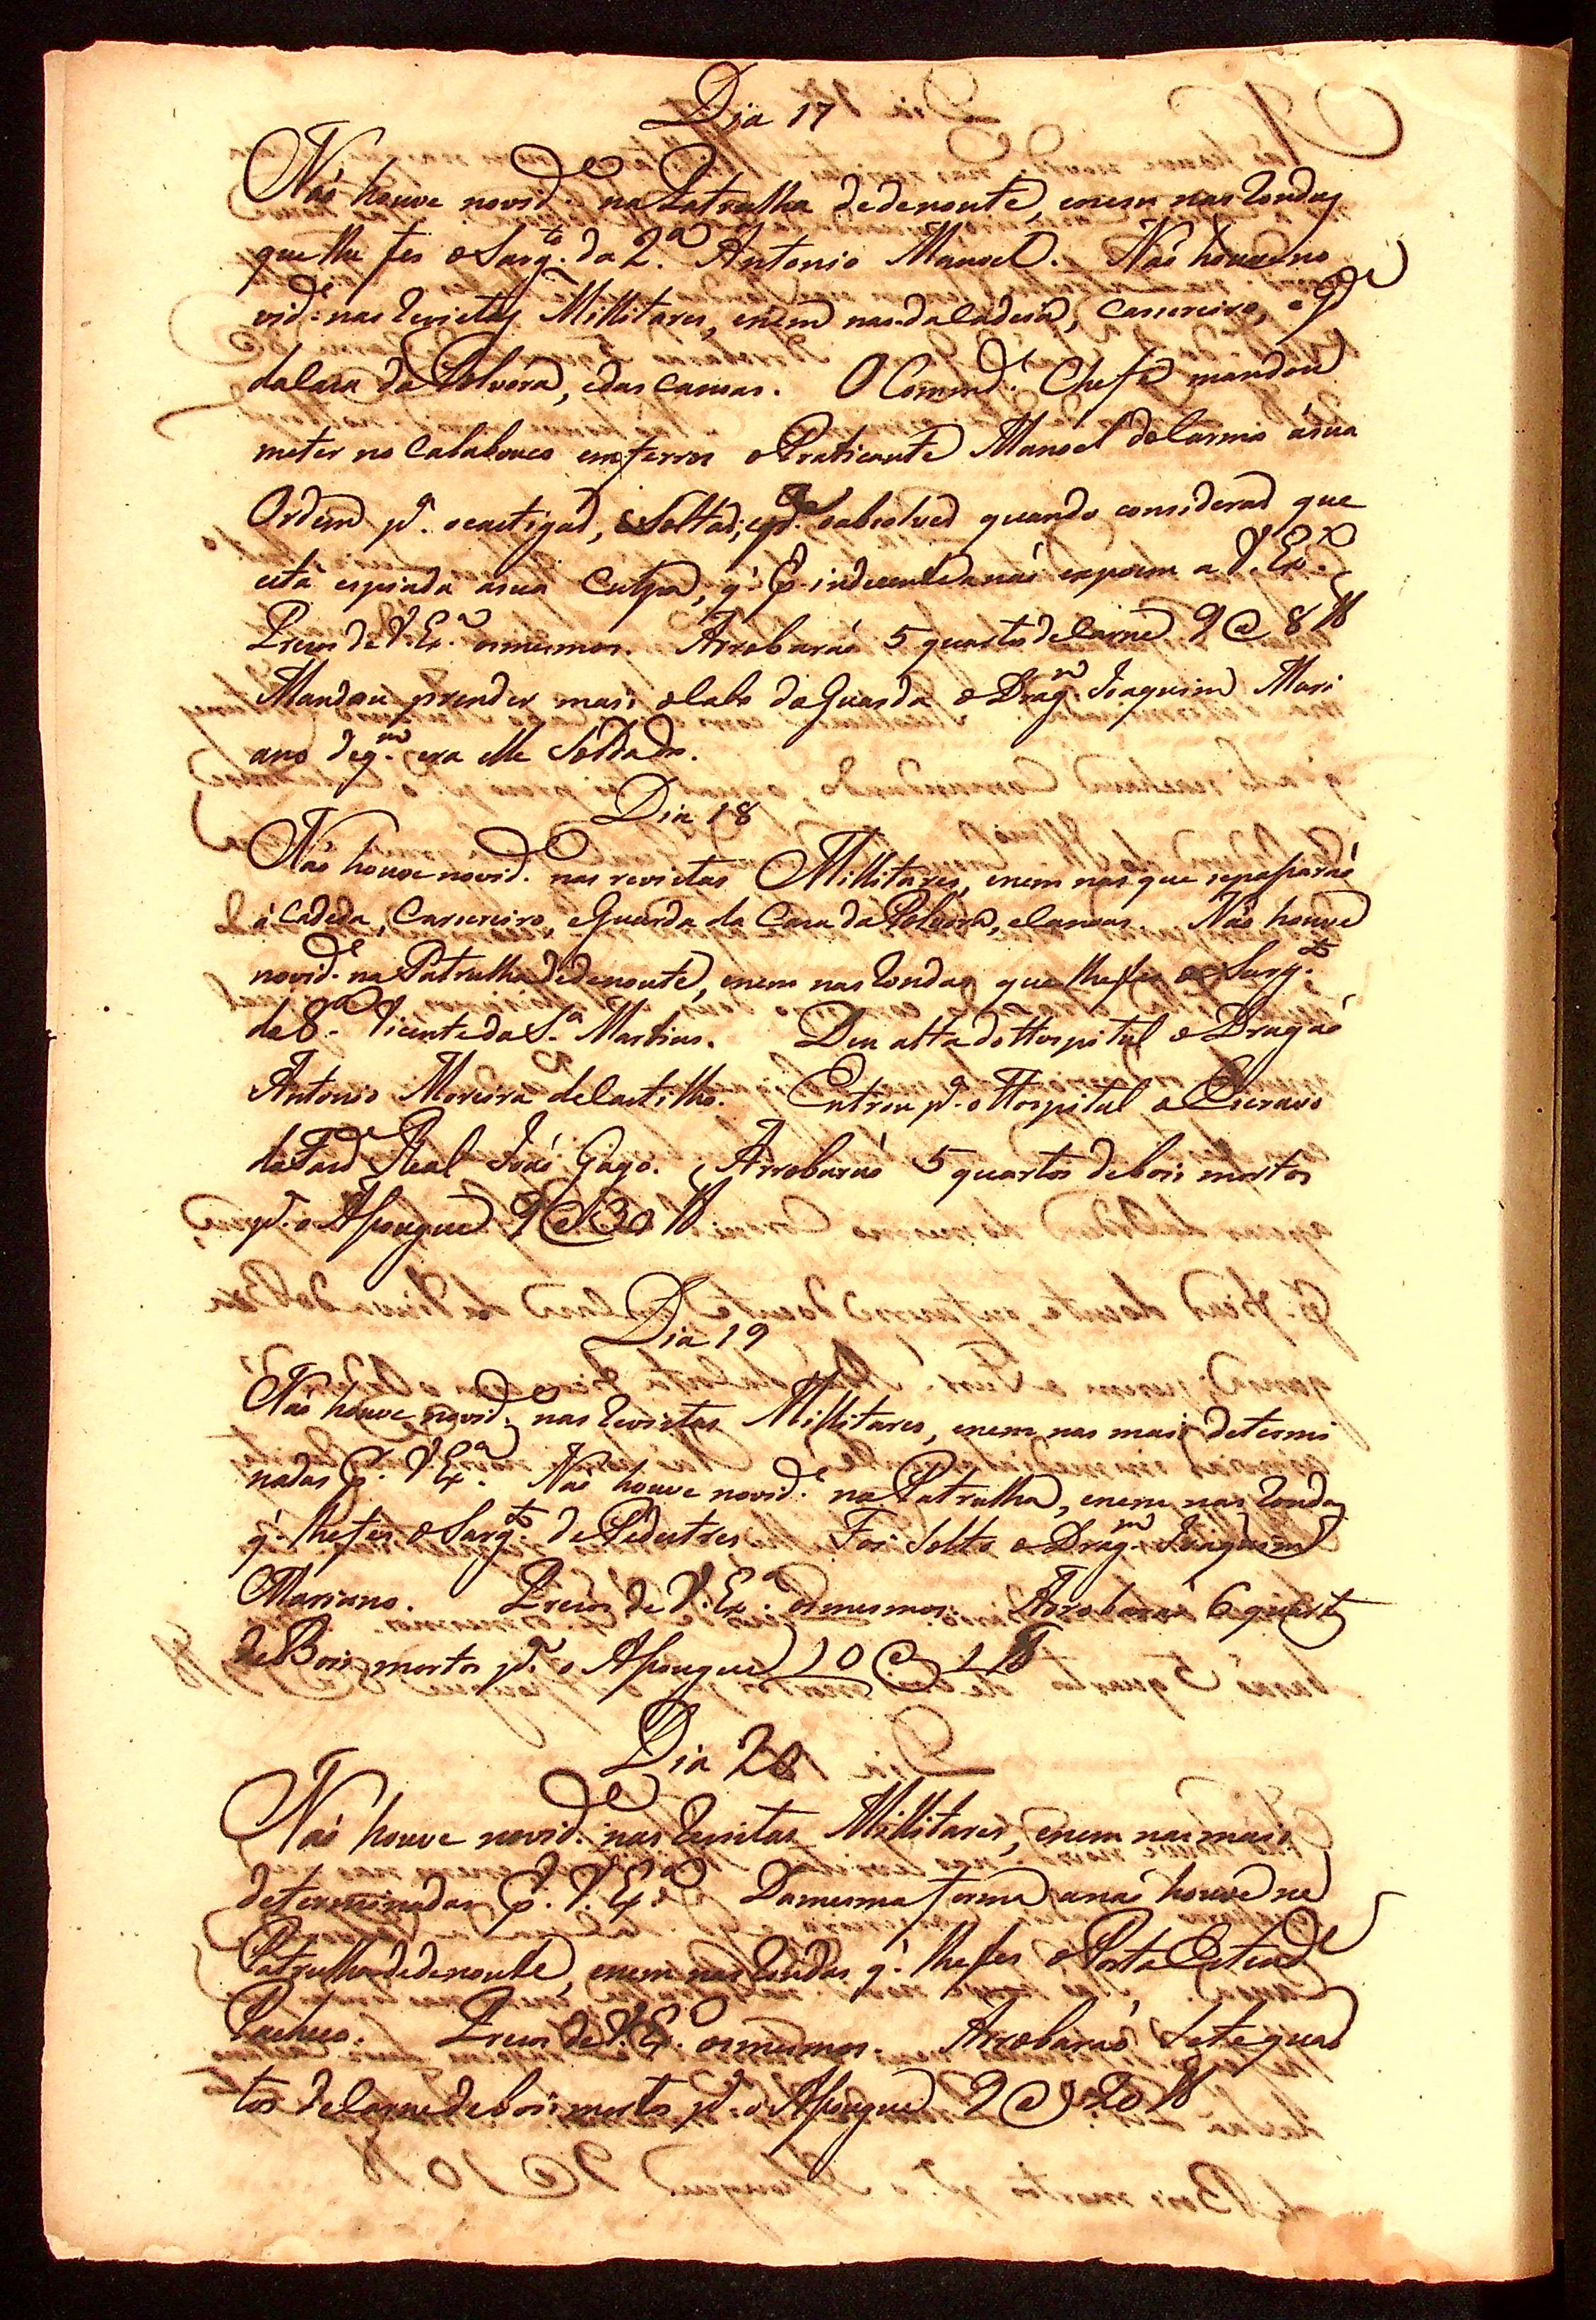 Dia 17
Não houve novid.e na Patrulha dedenoute, enem nas Rondas
que lhe fes o Sarg.to da 2.a Antonio Manoel. Não houve no
vid.e nas Revistas Millitares, enem nas da Cadeia, Carcereiro, e G.de
da Casa da Polvora, edas Canoas. O Comm.de Chefe mandou
meter no Calabouco em ferros o Praticante Manoel do Carmo ásua
Ordem p.a ocastigar, eSoltar; e oabsolver quando considerar que
está espiada asua Culpa, q. p. indecente anaõ exporem a V. Ex.a
Prezos de V. Ex.a osmesmos. Arrobaraõ 5 quartos de Carne 9 @ 8 lb
Mandou prender mais o Cabo da Guarda o Drag.m Joaquim Mari
ano deq.m era elle Soldado.
Dia 18
Não houve novid.e nas revistas Millitares, enem nas que sepassaraõ
á Cadeia, Carcereiro, eGuarda da Casa da Polvora, eCanoas. Não houve
novid.e na Patrulha dedenoute, enem nas Rondas que lhefes o Sarg.to
da 8.a Vicente da S.a Martins. Deu alta do Hospital o Dragaõ
Antonio Moreira de Castilho. Entrou p.a o Hospital o Escravo
da Faz.da Real Joaõ Gago. Arrobaraõ 5 quartos de bois mortos
p.a o Asougue 9 @ 30 lb
Dia 19
Não houve novid.e nas Revistas Millitares, enem nas mais determi
nadas p. V. Ex.a Não houve novid.e na Patrulha, enem nas Rondas
q. lhefes o Sarg.to de Pedestres Foi Solto o Drag.m Joaquim
Mariano. Prezos de V. Ex.a osmesmos. Arrobaraõ 6 quart.s
de Bois mortos p.a o Asougue 10 @ 1 lb
Dia 20
Não houve novid.e nas Revistas Millitares, enem nas mais
determinadas p. V. Ex.a Damesma forma anaõ houve na
Patrulha dedenoute, enem nas Rondas q. lhefes o Porta Estand.e
Pacheco. Prezos de V. Ex.a osmesmos. Arrobaraõ Sete quar
tos de Carne de bois mortos p.a o Asougue 9 @ 20 lb